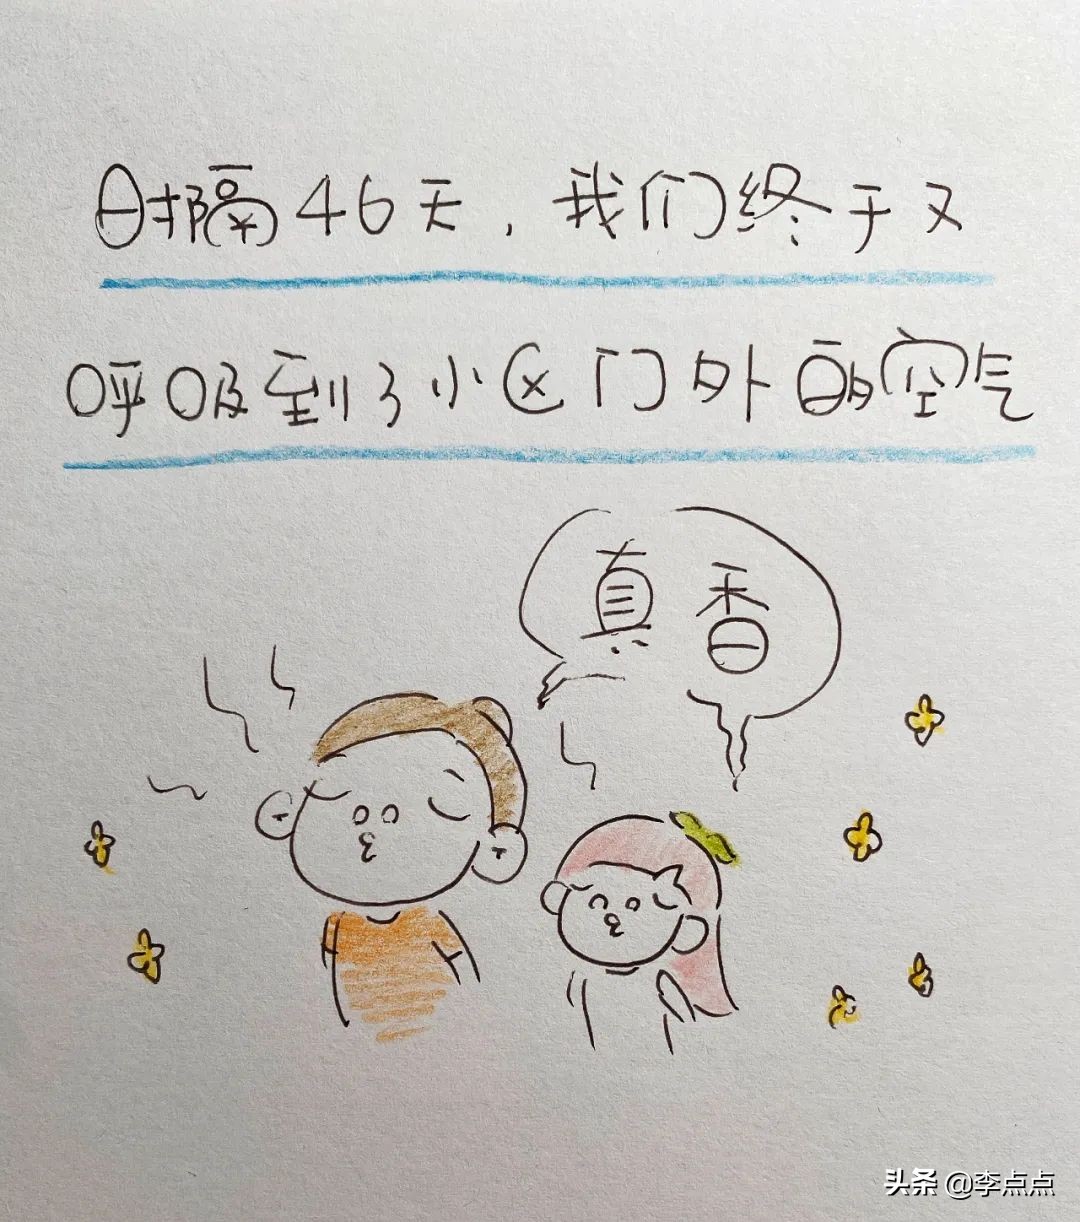 时隔46天，我们终于又
呼吸到了小区门外的空气
真香
头条 @李点点